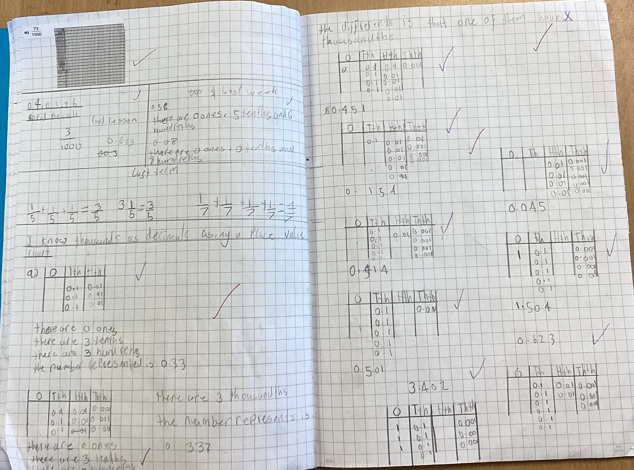 a) 73
1000
last lesson
last week
0.56
there are 0 ones, 5 tenths and 6
hundredths
3
1000
0.003
0.08
there are 0 ones, 0 tenths and
8 hundredths
last term
1/5 + 1/5 + 1/5 = 3/5
1/7 + 1/7 + 1/7 + 1/7 = 4/7
I know thousands as decimals using a Place value
chart
a)
O Tth Hth
0.1 0.01
0.1 0.01
0.1 0.01
there are 0 ones
there are 3 tenths
there are 3 hundredths
the number represented is 0.33
O Tth Hth Thth
0.1 0.01 0.001
0.1 0.01 0.001
0.1 0.01 0.001
there are 0 ones
there are 3 tenths
there are 3 thousandths
the number represents is
0.333
the is that one of them have
thousandths
O Tth Hth Thth
0.1 0.1 0.001
0.1 0.01
0.1 0.01
0.01
0.01
0.451
O Tth Hth Thth
0.1 0.01 0.001
0.01 0.001
0.01 0.001
0.01 0.001
0.01
0.154
O Th Hth Thth
0.01 0.001
0.01 0.001
0.01 0.001
0.01 0.001
0.045
O Tth Hth Thth
0.1 0.01 0.001
0.1 0.001
0.1 0.001
0.1 0.001
0.414
O Th Hth Thth
1 0.1 0.001
0.1 0.001
0.1 0.001
0.1 0.001
0.1
1.504
O Tth Hth Thth
0.1 0.001
0.1
0.1
0.1
0.1
0.501
0.623
O Th Hth Thth
0.1 0.01 0.001
0.1 0.01 0.001
0.1 0.001
0.1
0.1
0.1
3.402
O Tth Hth Thth
1 0.1 0.001
1 0.1 0.001
1 0.1
0.1